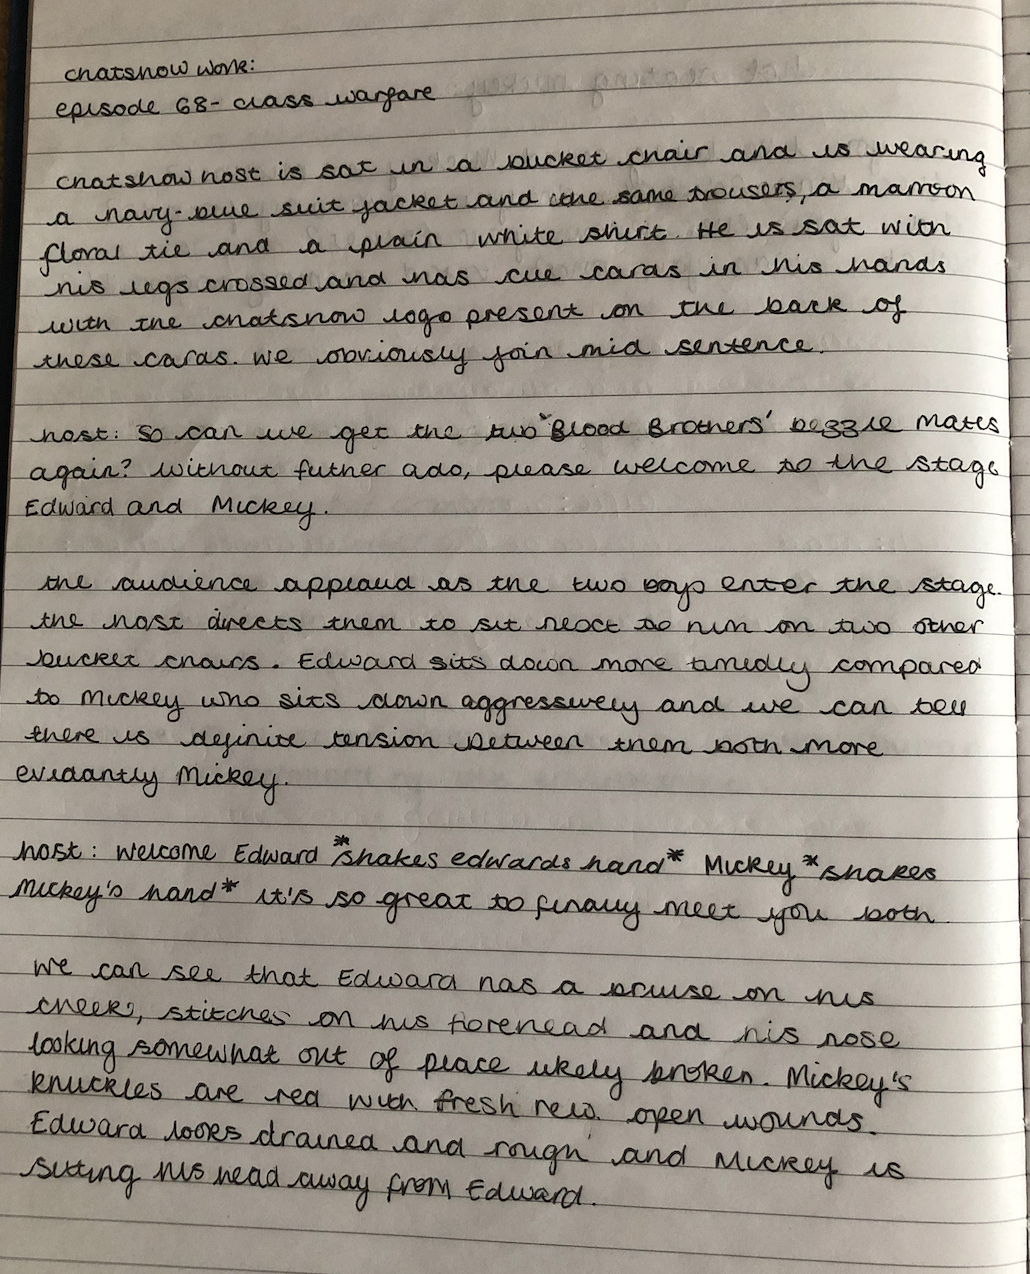 chatshow work:
episode 68- class warfare
chatshow host is sat in a bucket chair and is wearing
a navy-blue suit jacket and the same trousers, a marroon
floral tie and a plain white shirt. He is sat with
his legs crossed and has cue cards in his hands
with the chatshow logo present on the back of
these cards. we obviously join mid sentence.
host: so can we get the two 'Blood Brothers' bezzie Mates
again? without futher ado, please welcome to the stage
Edward and Mickey.
the audience applaud as the two boys enter the stage.
the host directs them to sit next to him on two other
bucket chairs. Edward sits down more timedly compared
to Mickey who sits down aggressively and we can tell
there is definite tension between them both more
evidantly Mickey.
host: welcome Edward *shakes edwards hand* Mickey *shakes
Mickey's hand* it's so great to finally meet you both
we can see that Edward has a bruise on his
cheek, stitches on his forehead and his nose
looking somewhat out of place likely broken. Mickey's
knuckles are red with fresh new open wounds.
Edward looks drained and rough and Mickey is
sitting his head away from Edward.